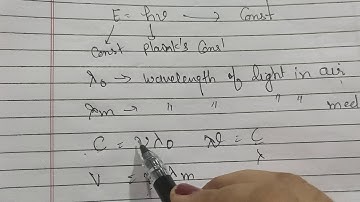 E = hν → Const
Const Plank's Const
λo → wavelength of light in air
λm → " " " " med
C = νλo ν = C/λ
V = λm